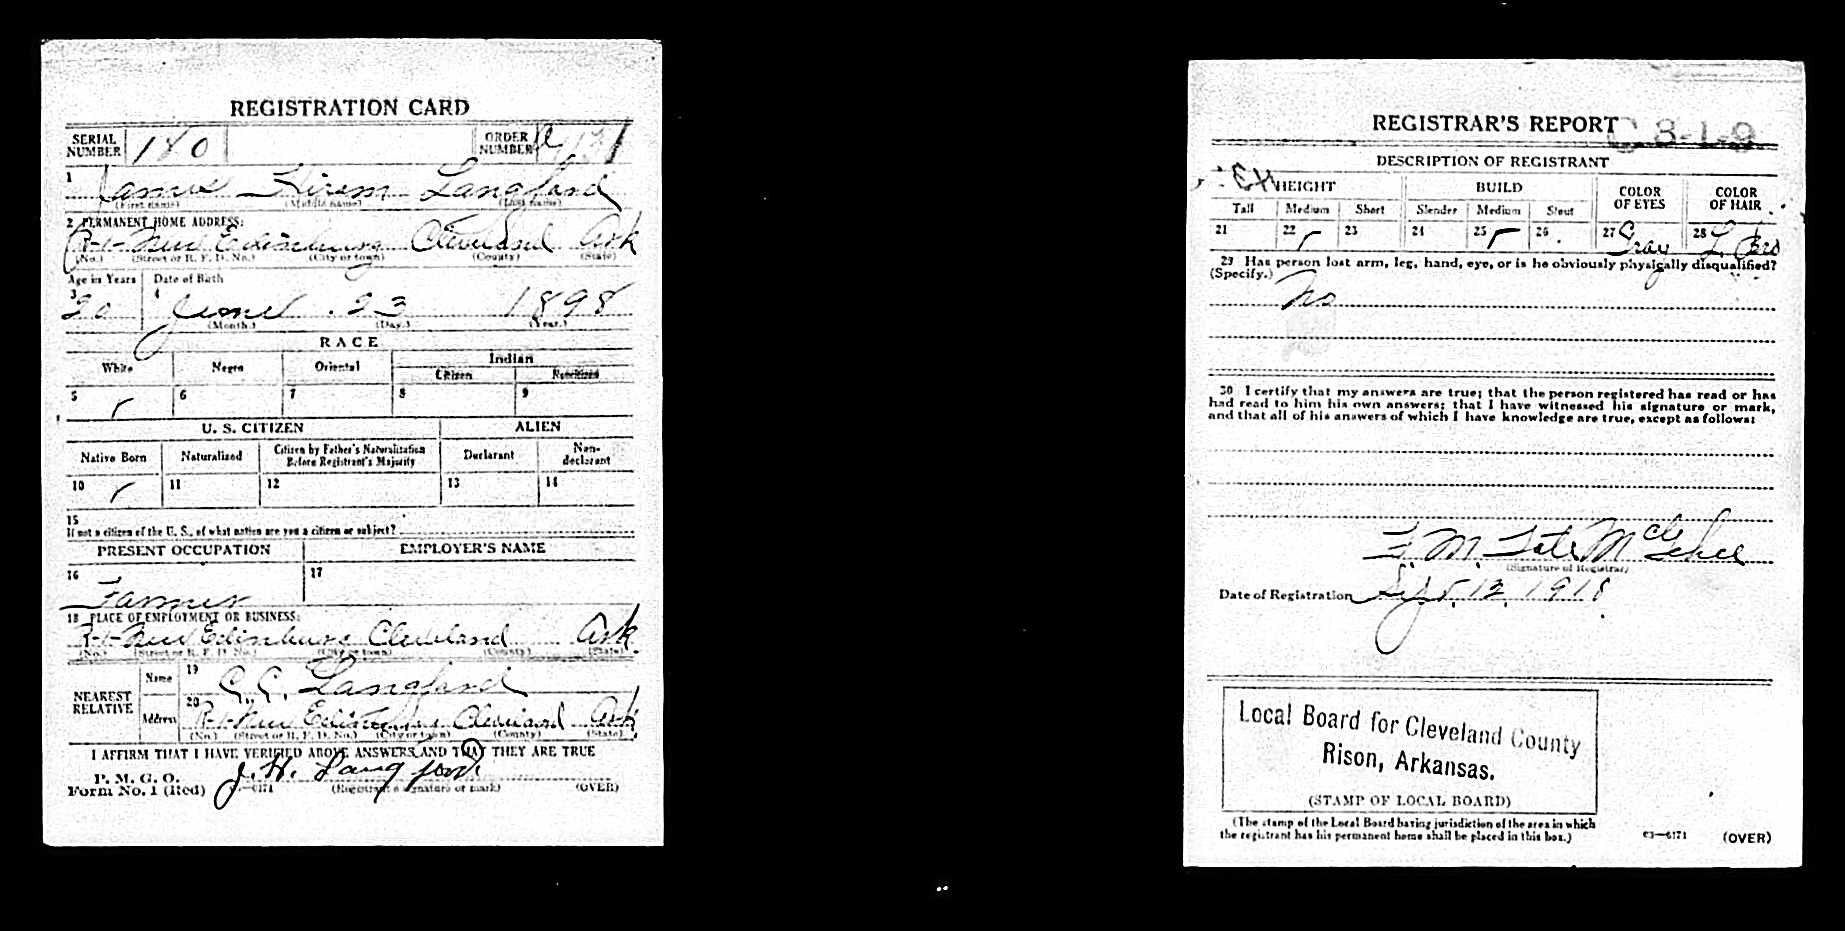 REGISTRATION CARD
SERIAL NUMBER 180
ORDER NUMBER
1 James Hirem Langford
(First name) (Middle name) (Last name)
2 PERMANENT HOME ADDRESS:
R-1- New Edinburg Cleveland Ark
(No.) (Street or R. F. D. No.) (City or town) (County) (State)
Age in Years Date of Birth
3 20 4 June 23 1898
(Month.) (Day.) (Year.)
RACE
White Negro Oriental Indian
Citizen Noncitizen
5 ✓ 6 7 8 9
U. S. CITIZEN ALIEN
Native Born Naturalized Citizen by Father's Naturalization Before Registrant's Majority Declarant Non-declarant
10 ✓ 11 12 13 14
15
If not a citizen of the U. S., of what nation are you a citizen or subject?
PRESENT OCCUPATION EMPLOYER'S NAME
16 Farmer 17
18 PLACE OF EMPLOYMENT OR BUSINESS:
R-1- New Edinburg Cleveland Ark
(No.) (Street or R. F. D. No.) (City or town) (County) (State)
NEAREST RELATIVE Name 19 C. C. Langford
Address 20 R-1- New Edinburg Cleveland Ark
(No.) (Street or R. F. D. No.) (City or town) (County) (State)
I AFFIRM THAT I HAVE VERIFIED ABOVE ANSWERS AND THAT THEY ARE TRUE
P. M. G. O.
Form No. 1 (Red) J. H. Langford
(Registrant's signature or mark) (OVER)
REGISTRAR'S REPORT
DESCRIPTION OF REGISTRANT
HEIGHT BUILD COLOR OF EYES COLOR OF HAIR
Tall Medium Short Slender Medium Stout
21 22 ✓ 23 24 25 ✓ 26 27 Gray 28 L. Bro
29 Has person lost arm, leg, hand, eye, or is he obviously physically disqualified?
(Specify.) No
30 I certify that my answers are true; that the person registered has read or has
had read to him his own answers; that I have witnessed his signature or mark,
and that all of his answers of which I have knowledge are true, except as follows:
(Signature of Registrar)
Date of Registration Sept. 12, 1918
Local Board for Cleveland County
Rison, Arkansas.
(STAMP OF LOCAL BOARD)
(The stamp of the Local Board having jurisdiction of the area in which
the registrant has his permanent home shall be placed in this box.)
03—6171 (OVER)